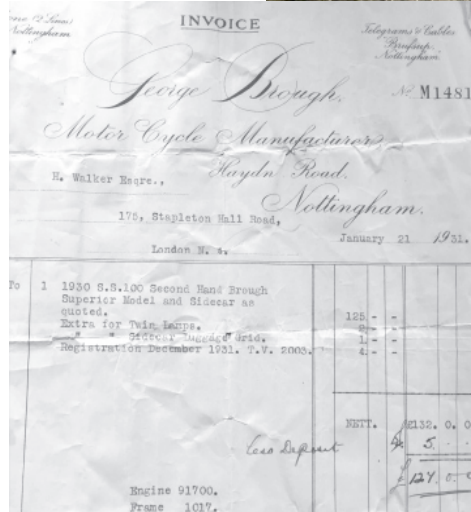 INVOICE
Nottingham.
Telegrams & Cables
Brufsup.
Nottingham.
George Brough.
No. M1481
Motor Cycle Manufacturer.
H. Walker Esqre.,
Haydn Road.
Nottingham.
175, Stapleton Hall Road,
London N. 4.
January 21 1931.
To 1 1930 S.S.100 Second Hand Brough
Superior Model and Sidecar as
quoted. 125 - -
Extra for Twin Lamps. - -
" " Sidecar Luggage Grid. 1 - -
Registration December 1931. T.V. 2003. 4 - -
NETT. £132. 0. 0
Less Deposit 5
Engine 91700.
Frame 1017.